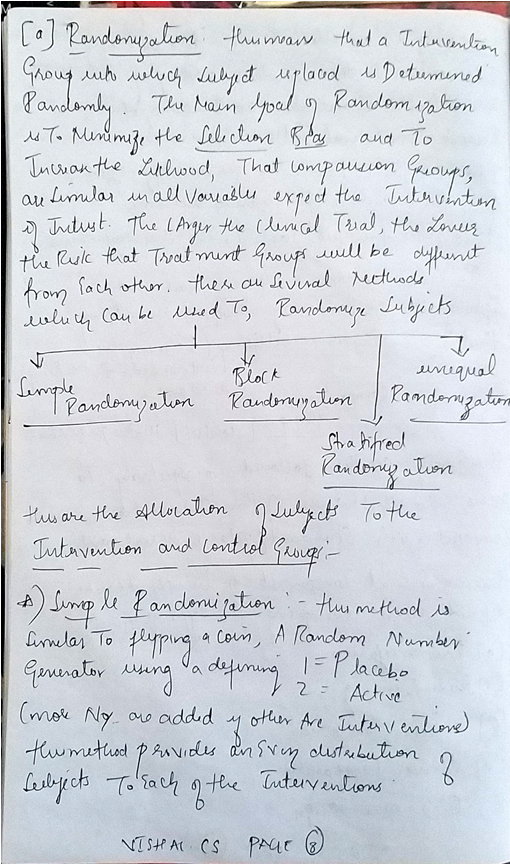 [a] Randomization: this mean that a Intervention
Group into which subject is placed is Determined
Randomly. The Main Goal of Randomization
is To Minimize the Selection Bias and To
Increase the Liklhood, That comparison Groups,
are similar in all Variables except the Intervention
of Intrust. The LArger the Clinical Trial, the Lower
the Risk that Treatment Groups will be different
from Each other. there are Several Methods
which can be used To, Randomize Subjects
Simple
Randomization
Block
Randomization
unequal
Randomization
Stratified
Randomization
this are the Allocation of Subjects To the
Intervention and control Groups:-
A) Simple Randomization:- this method is
Similar To flipping a coin, A Random Number
Generator using a defining 1 = Placebo
2 = Active
(more No are added if other Are Interventions)
this method provides an Even distribution of
Subjects To Each of the Interventions.
VISHAL CS PAGE (8)